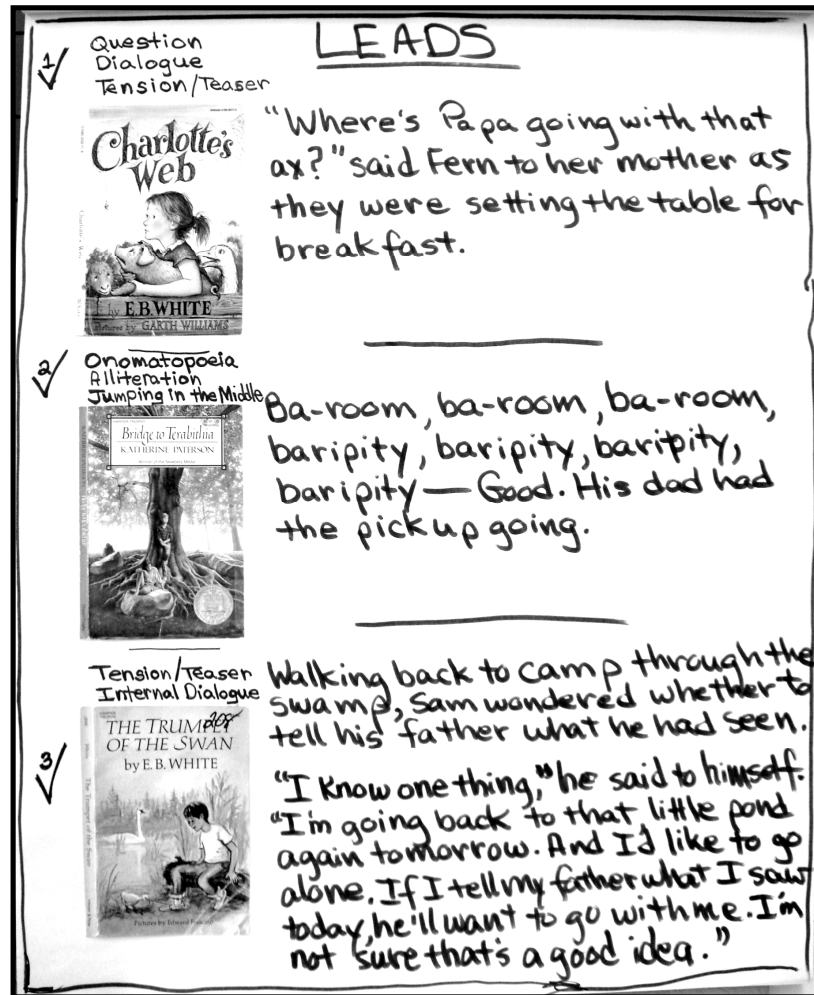 LEADS
1
Question
Dialogue
Tension/Teaser
Charlotte's
Web
by E.B. WHITE
Pictures by GARTH WILLIAMS
"Where's Papa going with that
ax?" said Fern to her mother as
they were setting the table for
breakfast.
2
Onomatopoeia
Alliteration
Jumping in the Middle
Bridge to Terabithia
KATHERINE PATERSON
Ba-room, ba-room, ba-room,
baripity, baripity, baripity,
baripity — Good. His dad had
the pickup going.
3
Tension/Teaser
Internal Dialogue
THE TRUMPET
OF THE SWAN
by E.B. WHITE
Pictures by Edward Frascino
Walking back to camp through the
swamp, Sam wondered whether to
tell his father what he had seen.
"I know one thing," he said to himself.
"I'm going back to that little pond
again tomorrow. And I'd like to go
alone. If I tell my father what I saw
today, he'll want to go with me. I'm
not sure that's a good idea."